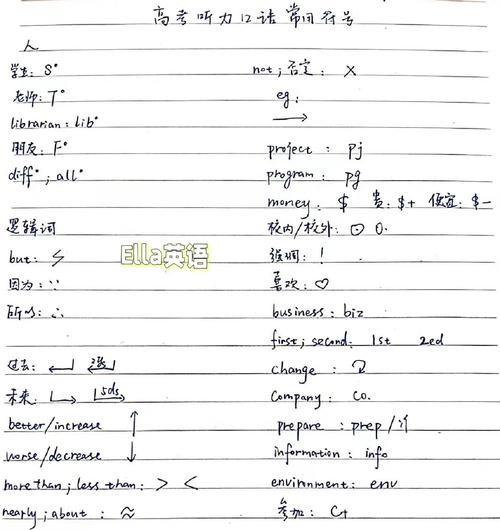 高考听力口语常用符号
人
学生: S°
老师: T°
librarian: lib°
朋友: F°
diff°; all°
逻辑词
but: ⚡
因为: ∵
所以: ∴
过去:
未来: 50s
better/increase ↑
worse/decrease ↓
more than; less than: > <
nearly; about: ≈
not; 否定: ×
eg:
→
project: pj
program: pg
money: $ 贵: $+ 便宜: $-
校内/校外: ⊙ O.
强调: !
喜欢: ♡
business: biz
first; second: 1st 2ed
change:
company: co.
prepare: prep/
information: info
environment: env
参加: C+
Ella英语